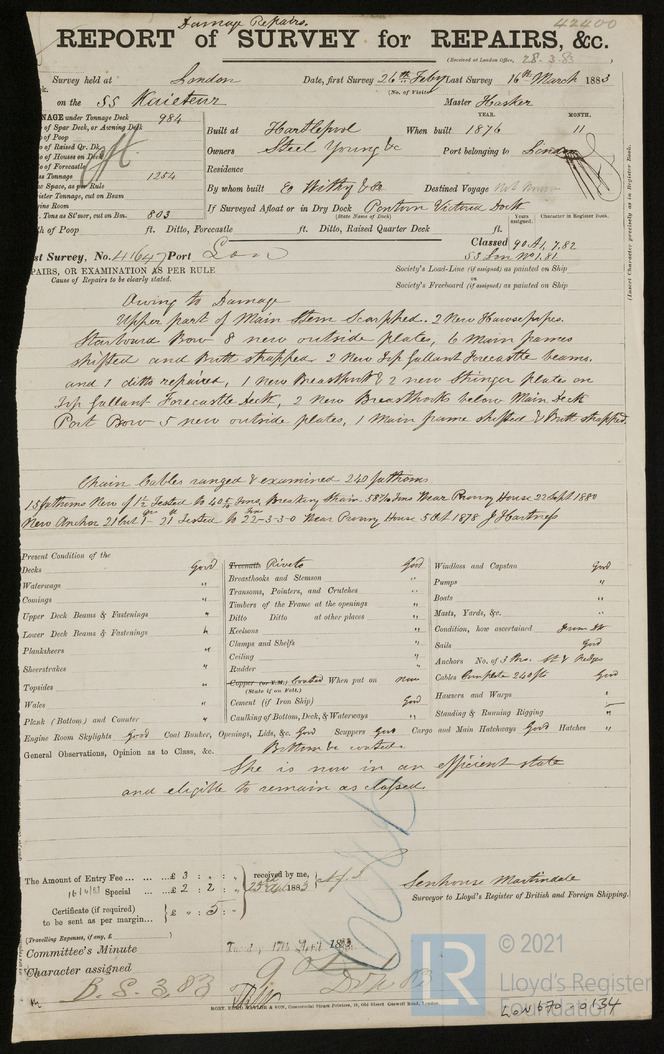 Damage Repairs.
42400
REPORT of SURVEY for REPAIRS, &c.
(Received at London Office, 28.3.83)
Survey held at London Date, first Survey 26th Feby Last Survey 16th March 1883
(No. of Visits)
on the SS Kaieteur Master Hasker
NAGE under Tonnage Deck 984
of Spar Deck, or Awning Deck
of Poop
of Raised Qr. Dk.
of Houses on Deck
of Forecastle
ss Tonnage 1254
ne Space, as per Rule
ister Tonnage, cut on Beam
ine Room
Tons as SE'mor, cut on Bm. 803
YEAR. MONTH.
Built at Hartlepool When built 1876 11
Owners Steel Young &c Port belonging to London
Residence
By whom built E Withy & Co Destined Voyage Not known
If Surveyed Afloat or in Dry Dock Victoria Dock
(State Name of Dock)
th of Poop ft. Ditto, Forecastle ft. Ditto, Raised Quarter Deck ft.
Years assigned. Character in Register Book.
(Insert Character precisely as in Register Book.
st Survey, No. 41647 Port Lon
Classed 90 A1, 7.82
SS Lon No 1.81
PAIRS, OR EXAMINATION AS PER RULE
Cause of Repairs to be clearly stated.
Society's Load-Line (if assigned) as painted on Ship
or
Society's Freeboard (if assigned) as painted on Ship
Owing to Damage
Upper part of Main Stem Scarpped. 2 New Hawsepipes.
Starboard Bow 8 new outside plates, 6 Main frames
shifted and Butt strapped. 2 New Top Gallant Forecastle beams.
and 1 ditto repaired, 1 New Breasthook & 2 new Stringer plates on
Top Gallant Forecastle Deck, 2 New Breasthooks below Main Deck
Port Bow 5 new outside plates, 1 Main frame shifted & Butt strapped.
Chain Cables ranged & examined 240 fathoms
15 fathoms New of 1½ Tested to 40 5 Tons, Breaking Strain Tons Wear Proving House 22 Sept 1880
New Anchor 21 Cwt 1 qr 21 lb Tested to 22-3-3-0 Wear Proving House 5 Oct 1878 J Hartness
Present Condition of the
Decks Good
Waterways "
Comings "
Upper Deck Beams & Fastenings "
Lower Deck Beams & Fastenings "
Planksheers "
Sheerstrakes "
Topsides "
Wales "
Plank (Bottom) and Counter "
Treenails Rivets Good
Breasthooks and Stemson "
Transoms, Pointers, and Crutches "
Timbers of the Frame at the openings "
Ditto Ditto at other places "
Keelsons "
Clamps and Shelfs "
Ceiling "
Rudder "
Copper (or Y.M.) Coated When put on now
(State if on Felt.)
Cement (if Iron Ship) Good
Caulking of Bottom, Deck, & Waterways "
Windlass and Capstan Good
Pumps "
Boats "
Masts, Yards, &c. "
Condition, how ascertained From Dk
Sails Good
Anchors No. of 3 Brs. St & Kedges
Cables Complete 240 fth Good
Hawsers and Warps "
Standing & Running Rigging "
Engine Room Skylights Good Coal Bunker, Openings, Lids, &c. Good Scuppers Good Cargo and Main Hatchways Good Hatches "
General Observations, Opinion as to Class, &c. Bottom be coated.
She is now in an efficient state
and eligible to remain as classed
The Amount of Entry Fee £ 3 : " : "
16/4/83 Special £ 2 : 2 : "
Certificate (if required) to be sent as per margin £ " : 5 : "
received by me,
1883
(Travelling Expenses, if any, £ )
Senhouse Martindale
Surveyor to Lloyd's Register of British and Foreign Shipping.
Committee's Minute Tuesday 17th April 1883
Character assigned 90 A1
B.S. 3,83
LR
© 2021
Lloyd's Register
Foundation
LON 670-0134